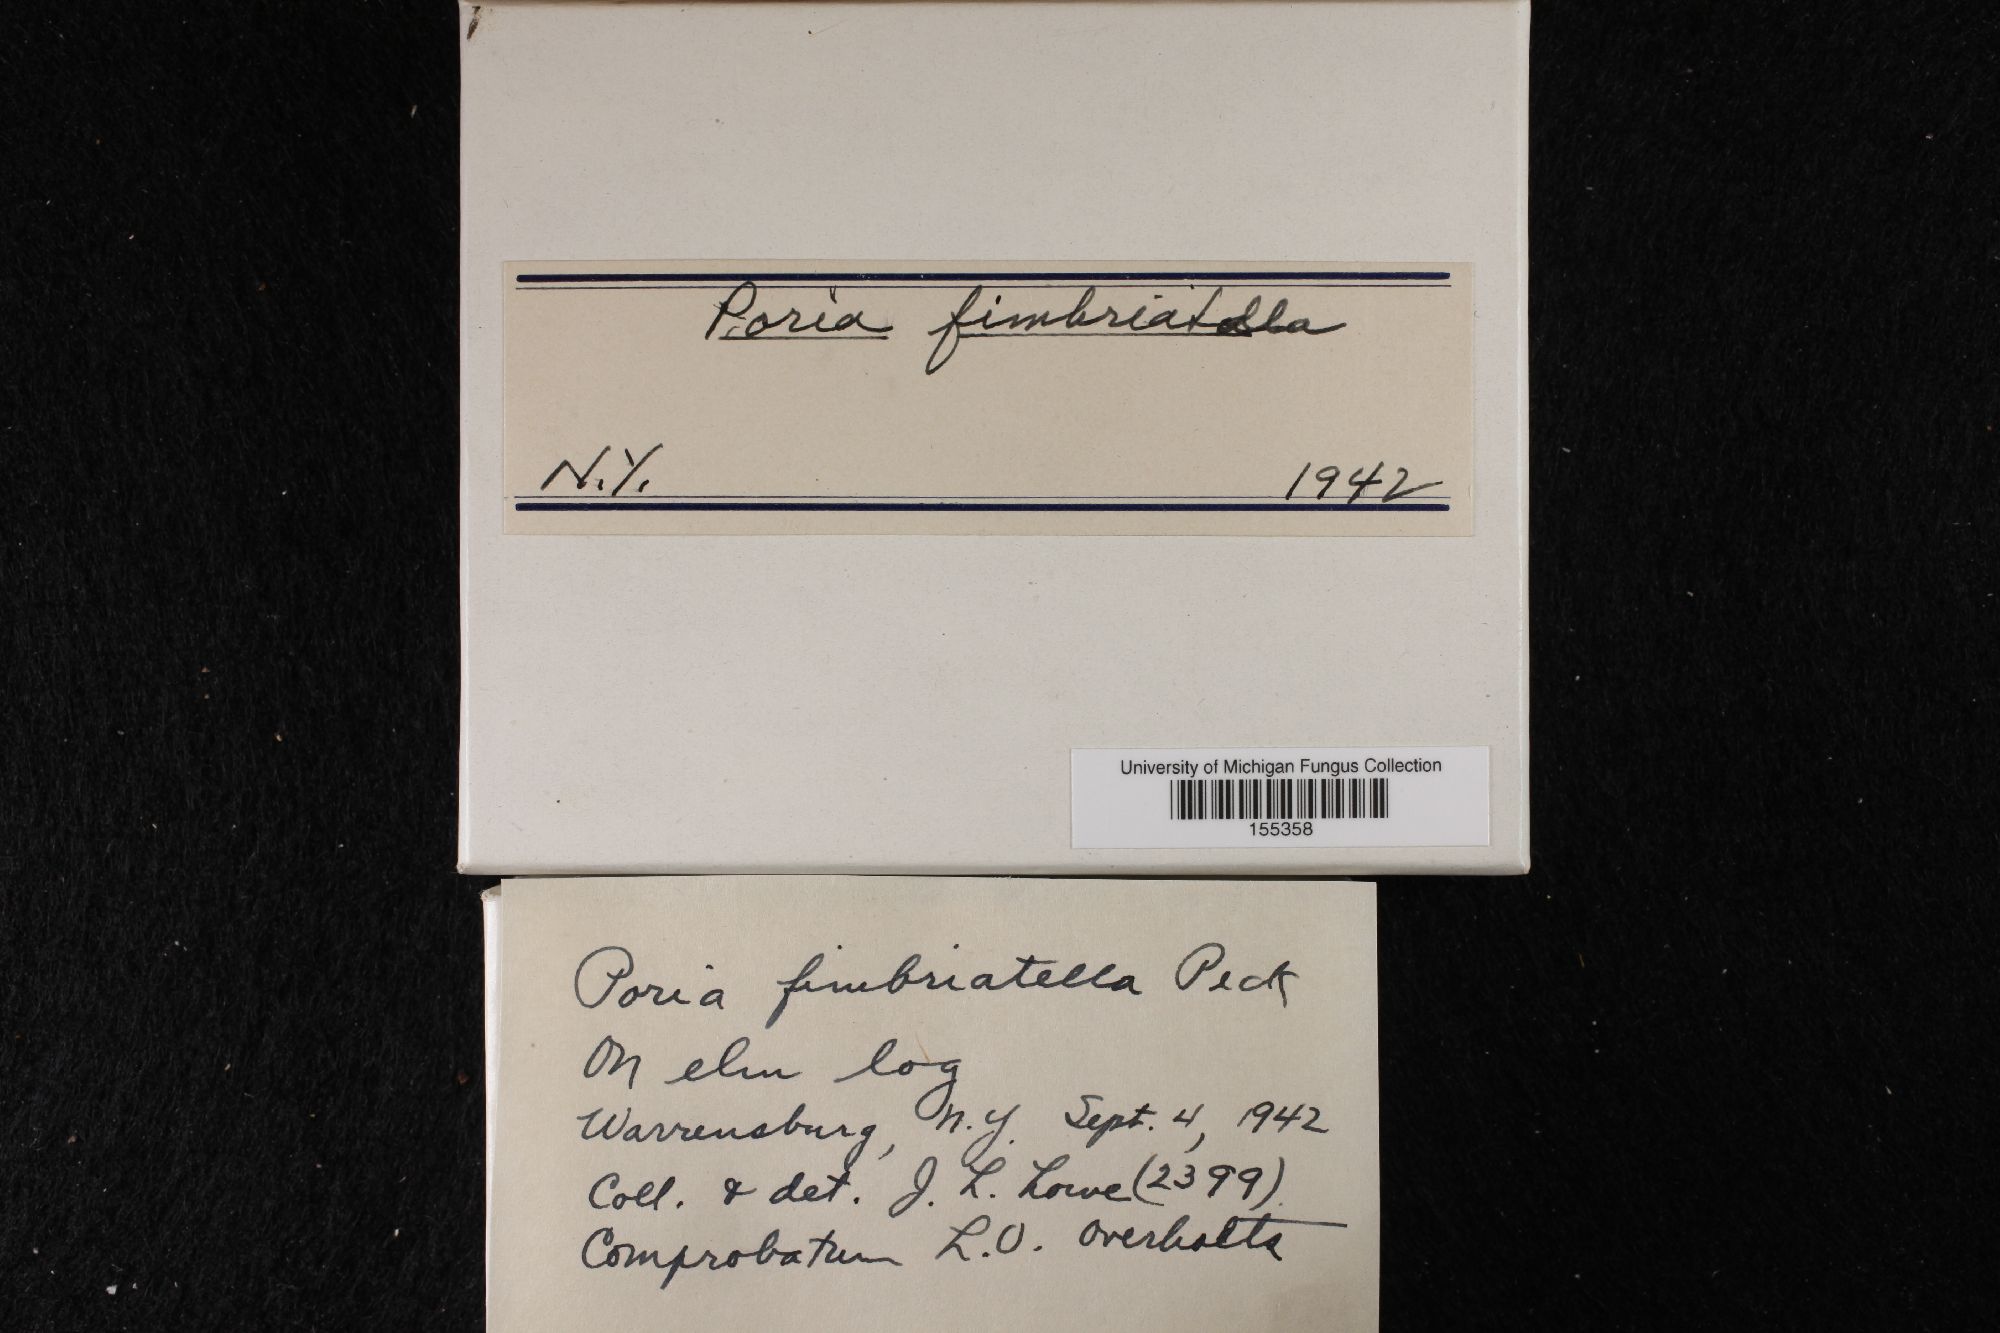 Poria fimbriatella
N.Y. 1942
University of Michigan Fungus Collection
155358
Poria fimbriatella Peck
On elm log
Warrensburg, N.Y. Sept. 4, 1942
Coll. & det. J. L. Lowe (2399)
Comprobatum L.O. Overholts